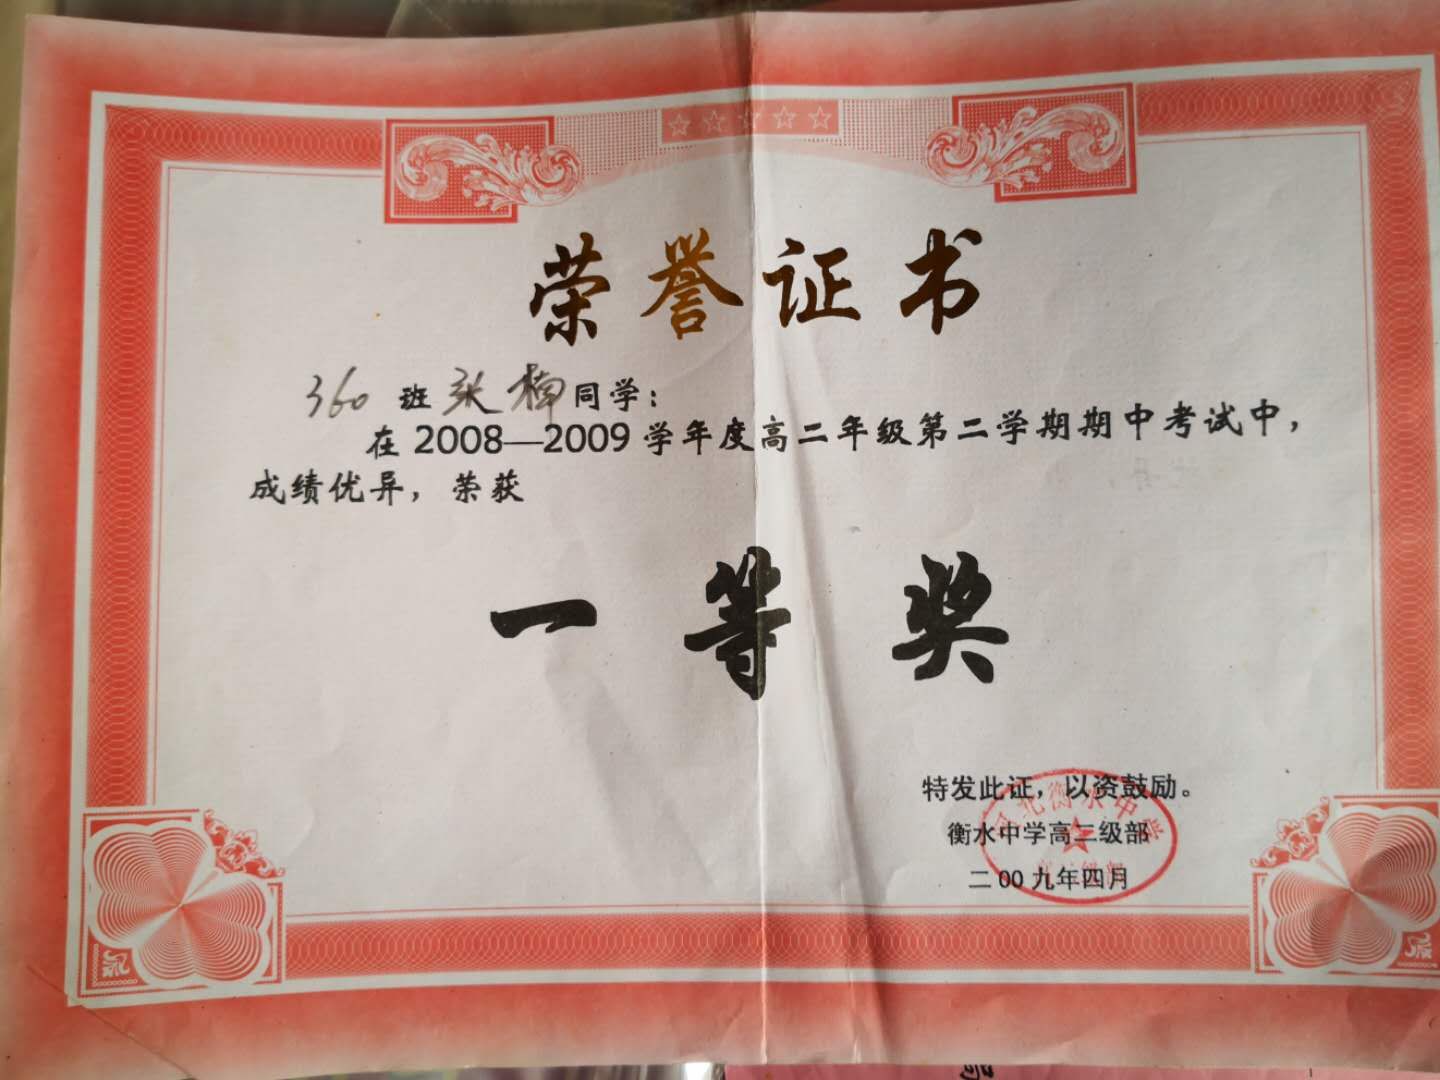 荣誉证书
360 班 张楠 同学：
在 2008—2009 学年度高二年级第二学期期中考试中，
成绩优异，荣获
一等奖
特发此证，以资鼓励。
衡水中学高二级部
二00九年四月
河北衡水中学
高二级部